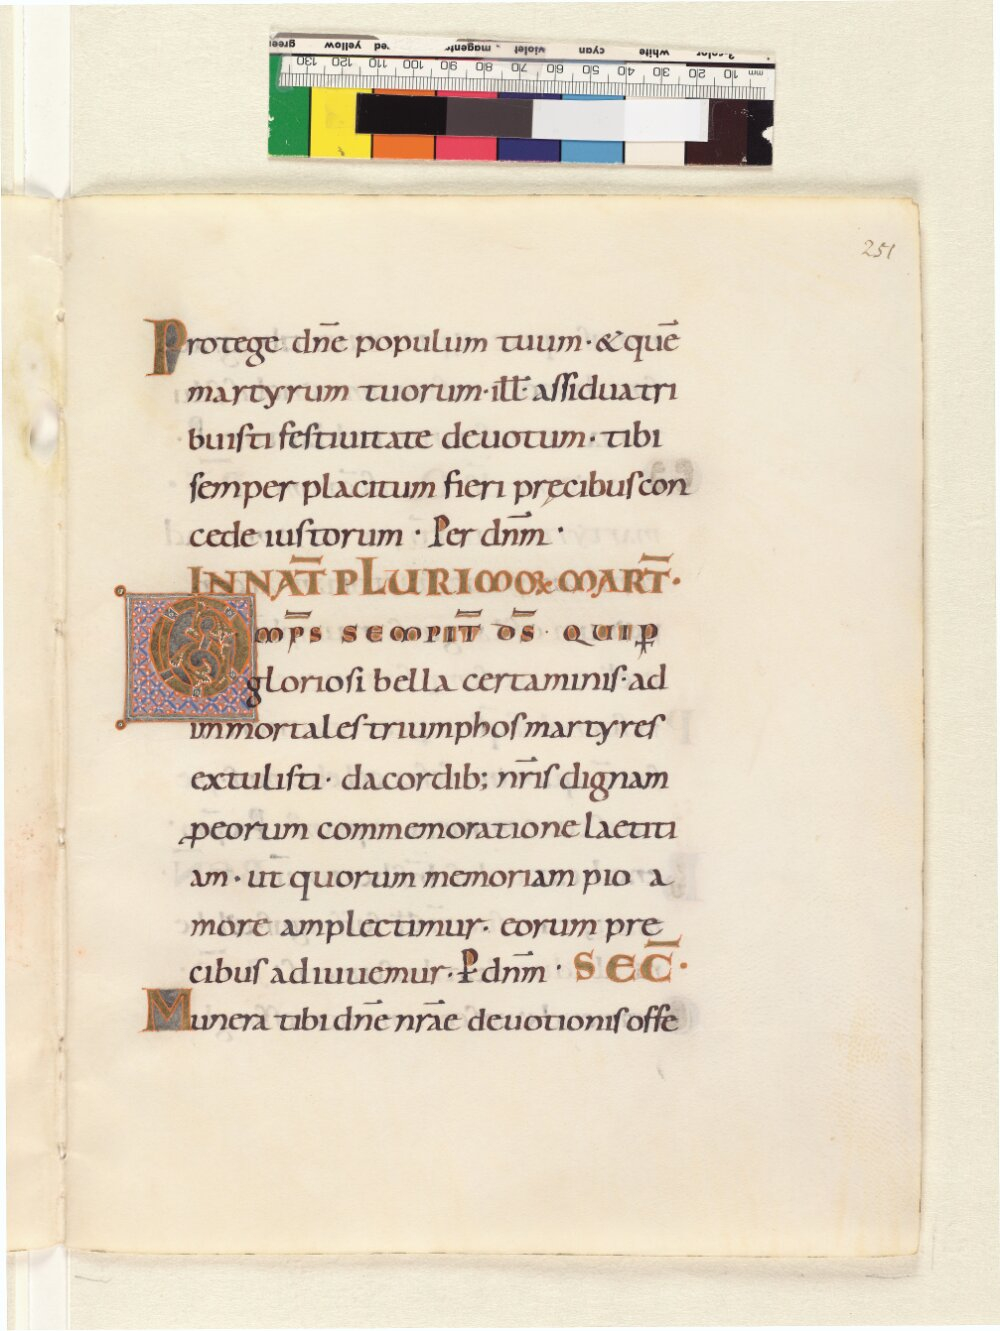 green yellow red magenta violet cyan white 3-color
130 120 110 100 90 80 70 60 50 40 30 20 10 mm
251
Protege dn̄e populum tuum · & quē
martyrum tuorum · ill̄ · assidua tri
buisti festiuitate deuotum · tibi
semper placitum fieri pręcibus con
cede iustorum · Per dnm̄ ·
IN NAT̄ PLURIMOR MART̄ ·
OMPS̄ SEMPIT̄ DS̄ · QUI P̱
gloriosi bella certaminis · ad
immortales triumphos martyres
extulisti · da cordib; nr̄is dignam
ꝓ eorum commemoratione laetiti
am · ut quorum memoriam pio a
more amplectimur · eorum pre
cibus adiuuemur · P̱ dnm̄ · SEC̄ ·
Munera tibi dn̄e nrāe deuotionis offe